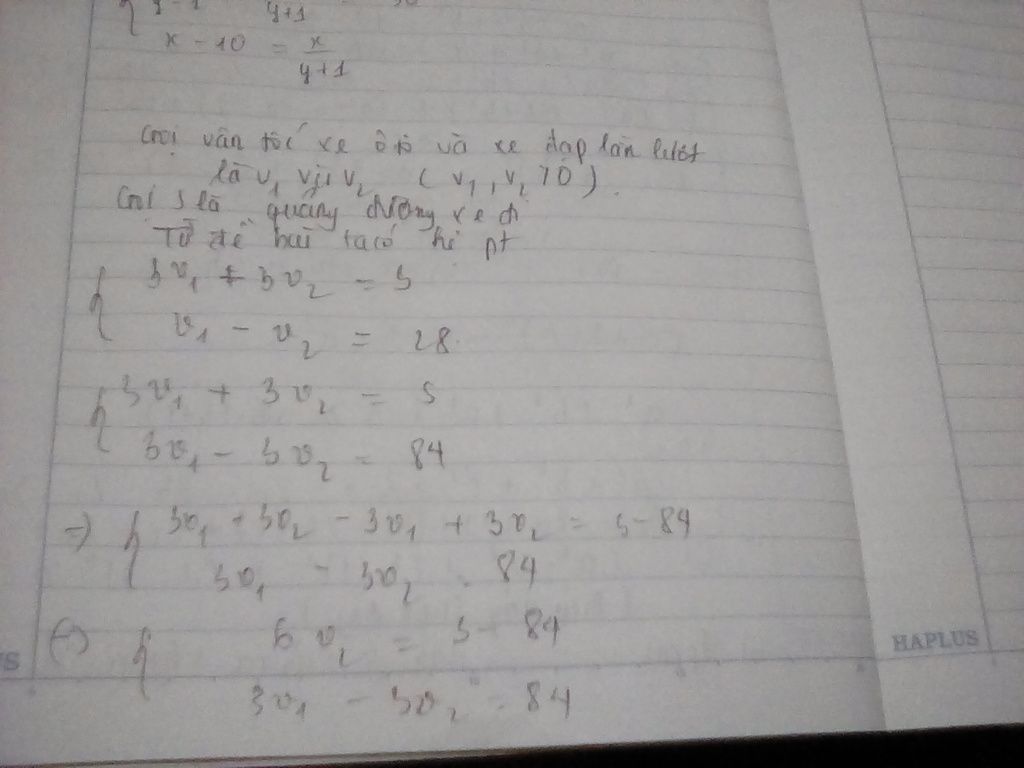 x - 10 = x/(y+1)
Gọi vận tốc xe ô tô và xe đạp lần lượt
là v₁ và v₂ (v₁, v₂ > 0).
Gọi S là quãng đường xe đi
Từ đề bài ta có hệ pt
{ 3v₁ + 3v₂ = S
v₁ - v₂ = 28
{ 3v₁ + 3v₂ = S
3v₁ - 3v₂ = 84
=> { 3v₁ + 3v₂ - 3v₁ + 3v₂ = S - 84
3v₁ - 3v₂ = 84
{ 6v₂ = S - 84
HAPLUS
3v₁ - 3v₂ = 84